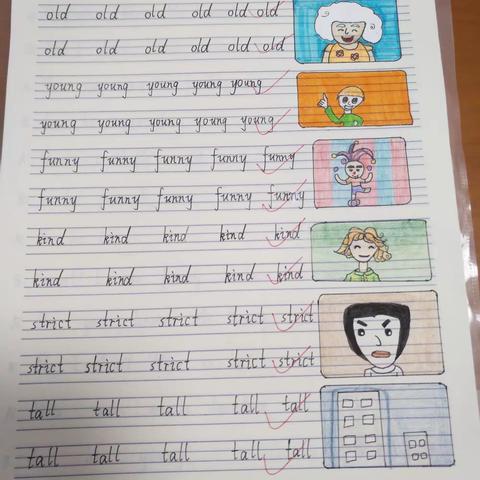 old old old old old old
old old old old old old
young young young young young
young young young young young
funny funny funny funny funny
funny funny funny funny funny
kind kind kind kind kind
kind kind kind kind kind
strict strict strict strict strict
strict strict strict strict strict
tall tall tall tall tall
tall tall tall tall tall